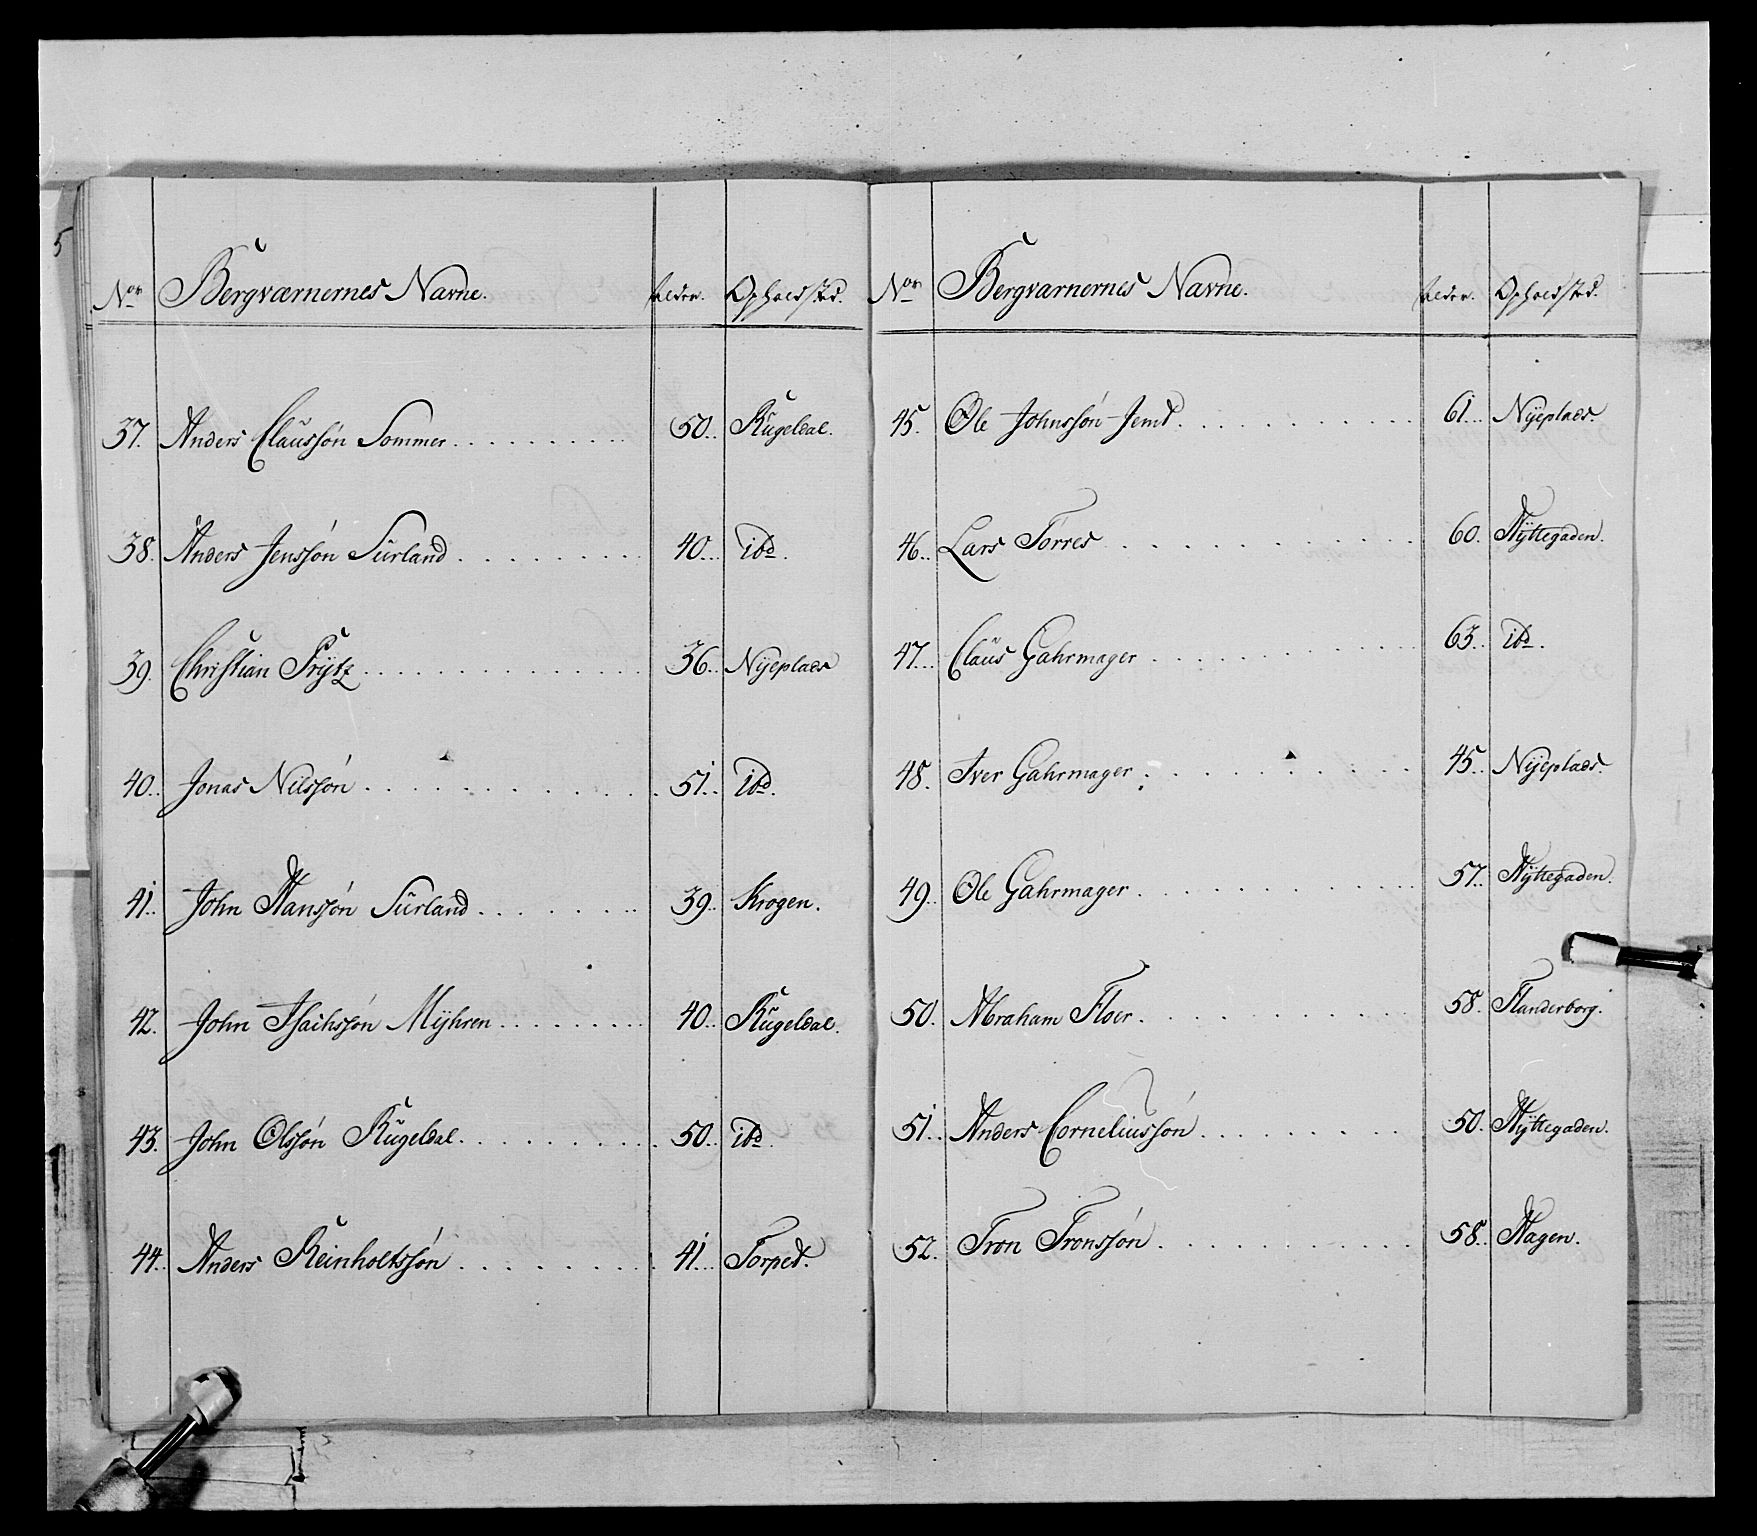 Nor Bergværnernes Navne. Alder. Opholdsted.
37. Anders Claussøn Sommer 50. Kugeldal.
38. Anders Jenssøn Surland 40. ibd.
39. Christian Prÿtz 36. Nÿeplads
40. Jonas Nilssøn 51. ibd.
41. John Hanssøn Surland 39. Krogen.
42. John Isachssøn Mÿhren 40. Kugeldal.
43. John Olssøn Kugeldal 50. ibd.
44. Anders Reinholtssøn 41. Torpet.
Nor Bergværnernes Navne. Alder. Opholdsted.
45. Ole Johnssøn Jemt 61. Nÿeplads.
46. Lars Torres 60. Hÿttegaden.
47. Claus Gahrmager 63. ibd.
48. Iver Gahrmager 45. Nÿeplads.
49. Ole Gahrmager 57. Hÿttegaden.
50. Abraham Floer 58. Flanderborg.
51. Anders Corneliussøn 50. Hÿttegaden.
52. Tron Tronssøn 58. Hagen.